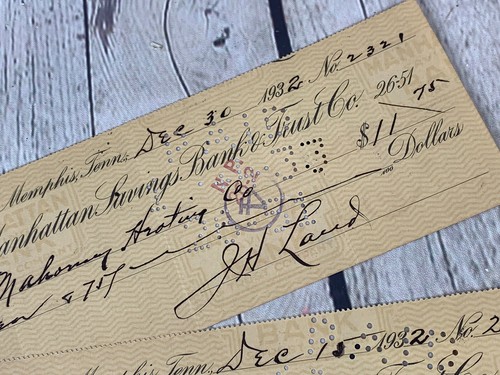 Memphis, Tenn., Dec 30 1932 No. 2321
Manhattan Savings Bank & Trust Co. 26-51
$11 75/100
Mahoney Co
Dollars
JH Laud
Memphis, Tenn., Dec 15 1932 No. 2